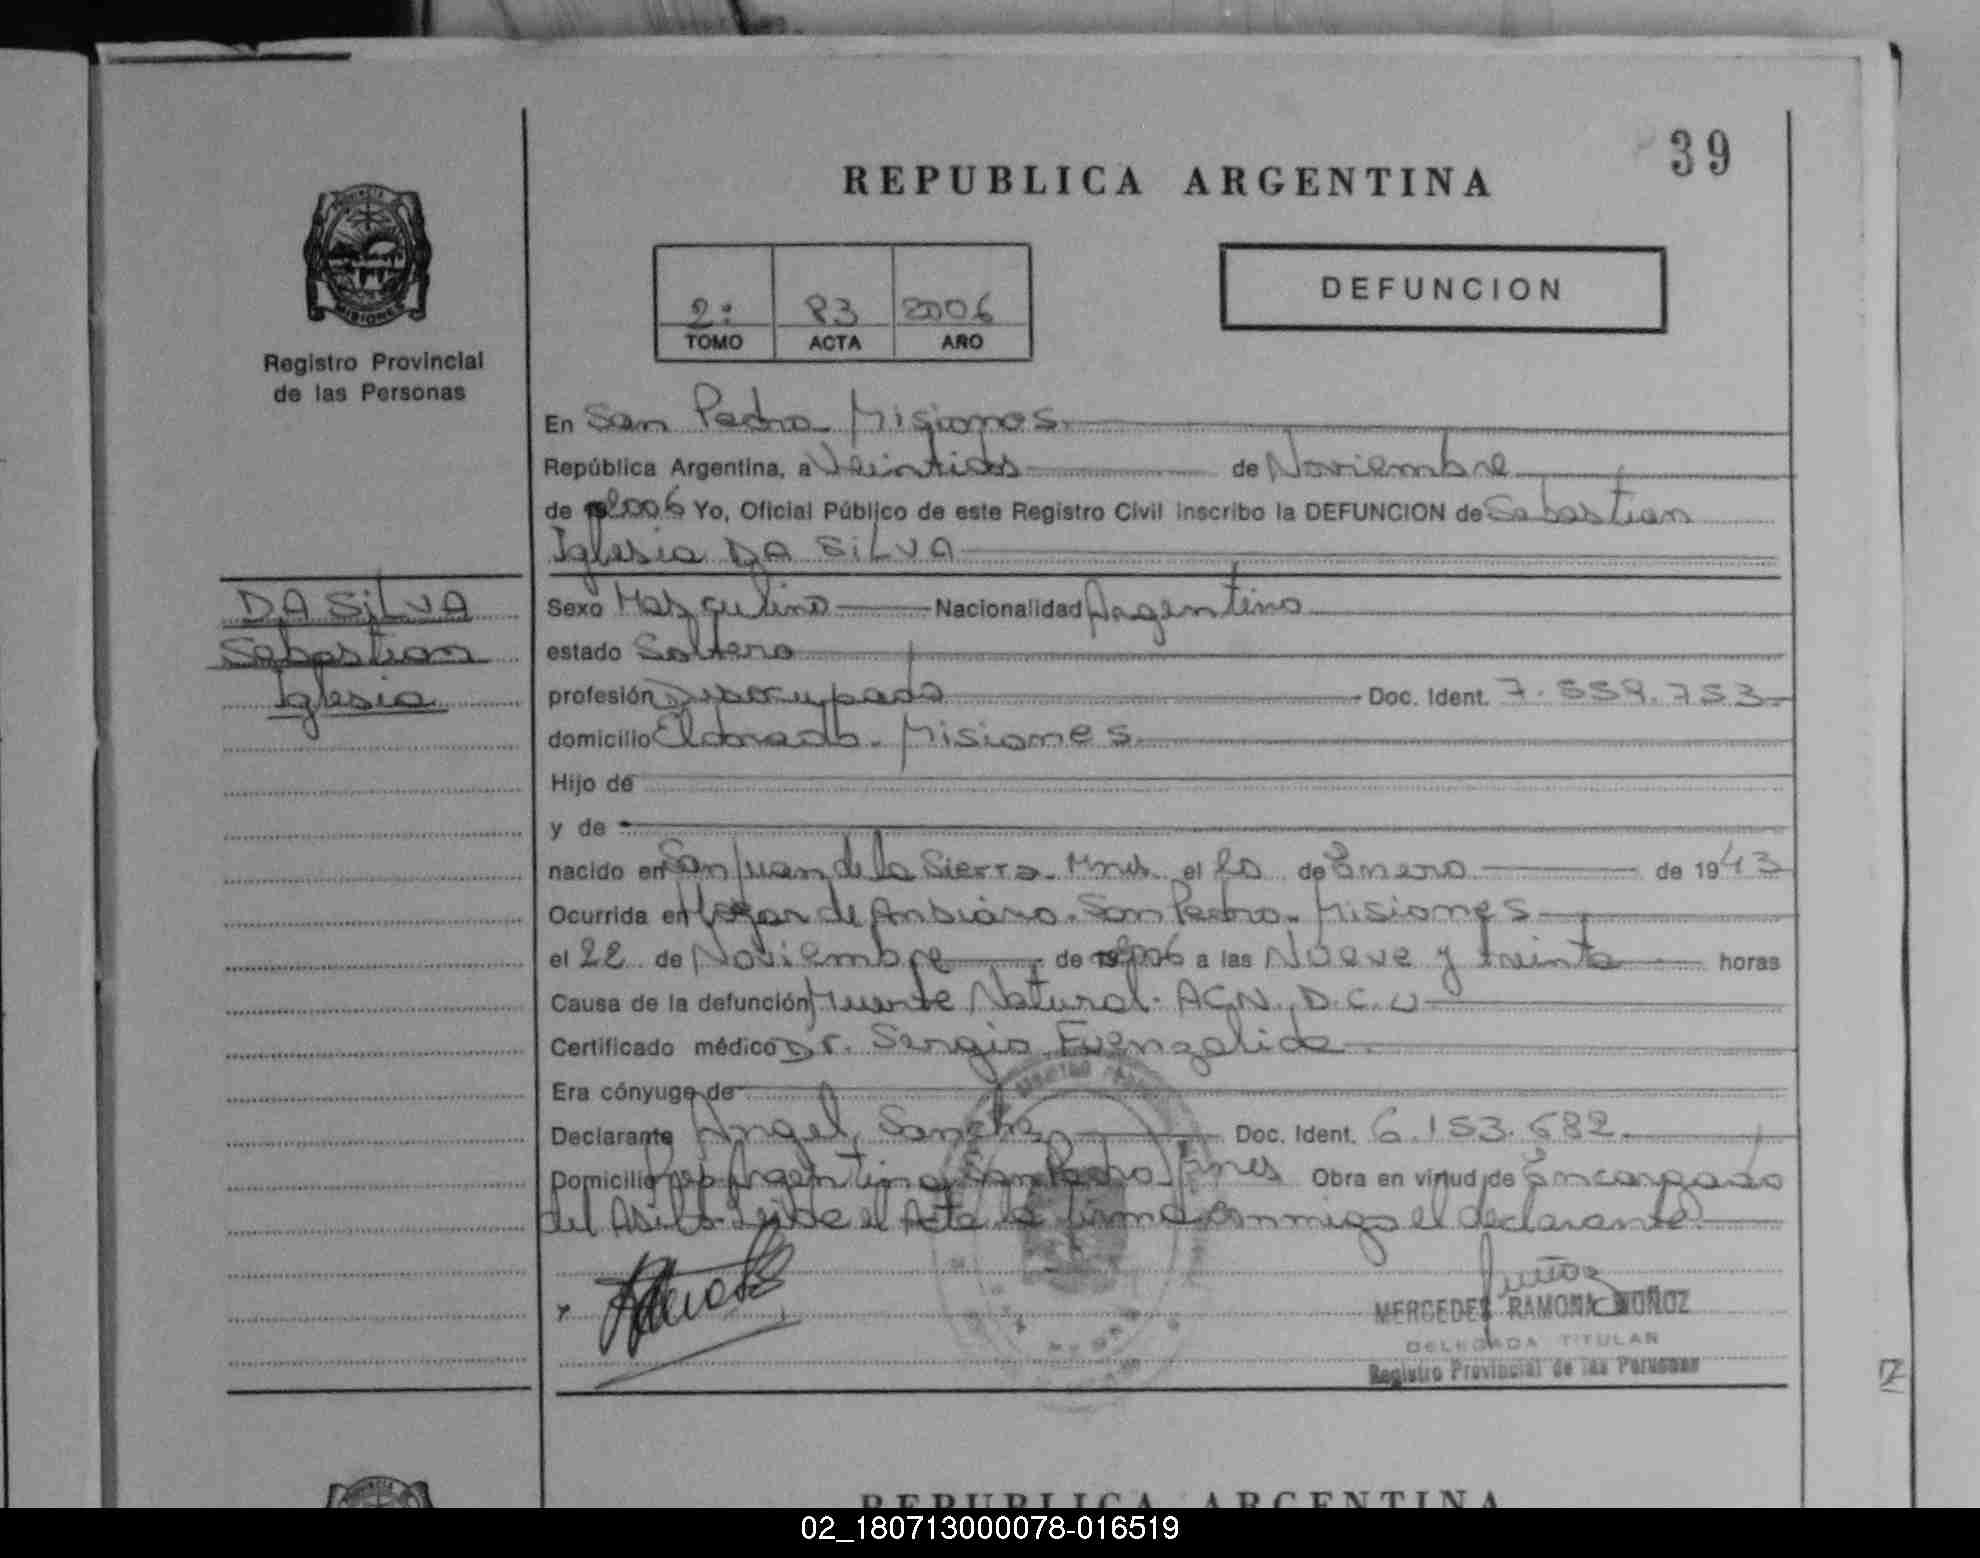 39
REPUBLICA ARGENTINA
PROVINCIA
MISIONES
Registro Provincial
de las Personas
2º 83 2006
TOMO ACTA AÑO
DEFUNCION
En San Pedro - Misiones
República Argentina, a Veintidos de Noviembre
de 2006 Yo, Oficial Público de este Registro Civil inscribo la DEFUNCION de Sebastian
Iglesia DA SILVA
DA SILVA
Sebastian
Iglesia
Sexo Masculino Nacionalidad Argentino
estado Soltero
profesión Desocupado Doc. Ident. 7.559.753
domicilio Eldorado - Misiones
Hijo de
y de
nacido en San Juan de la Sierra - Mnes el 20 de Enero de 1943
Ocurrida en Hogar de Anciano - San Pedro - Misiones
el 22 de Noviembre de 2006 a las Nueve y treinta horas
Causa de la defunción Muerte Natural. ACN. D.C.U
Certificado médico Dr. Sergio Fuenzalida
Era cónyuge de
Declarante Angel Sanchez Doc. Ident. 6.153.682
Domicilio Rep Argentina San Pedro Mnes Obra en virtud de Encargado
del Asilo. Leida el Acta la firma conmigo el declarante
Muñoz
MERCEDES RAMONA MUÑOZ
DELEGADA TITULAR
Registro Provincial de las Personas
REPUBLICA ARGENTINA
02_180713000078-016519